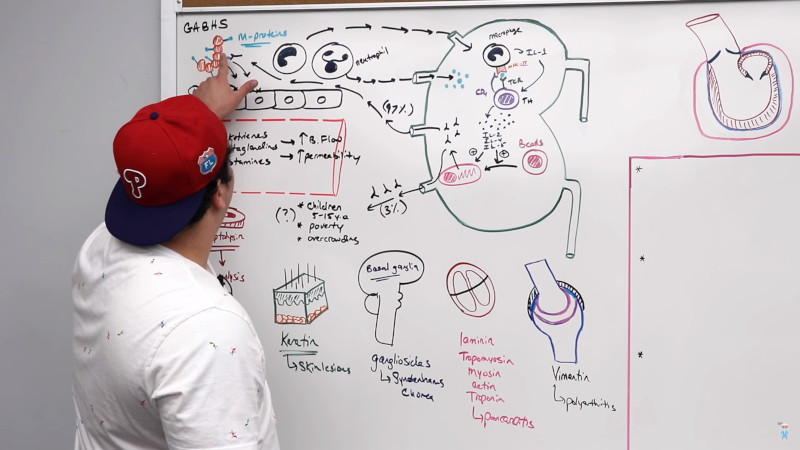 GABHS
M-proteins
neutrophil
macrophage
IL-1
MHC-II
TCR
CD4
TH
IL-2
IL-4
IL-5
Bcells
(97%)
(3%)
↑ B.Flow
↑ permeability
(?)
* Children
5-15 y.o
* poverty
* overcrowding
FL
P
Keratin
↳ Skin lesions
Basal ganglia
gangliosides
↳ Syndenhams
Chorea
laminin
Tropomyosin
myosin
actin
Troponin
↳ pancarditis
Vimentin
↳ polyarthritis
*
*
*